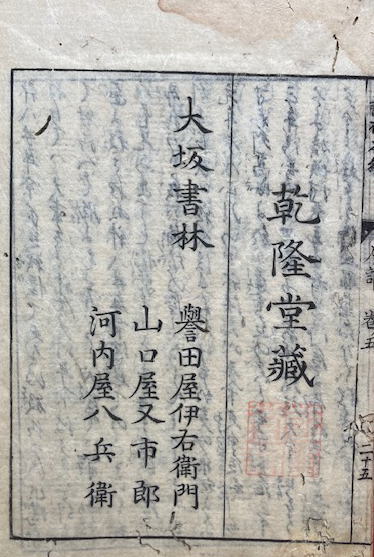 乾隆堂藏
大坂書林
譽田屋伊右衛門
山口屋又市郎
河内屋八兵衛
卷五
二十五